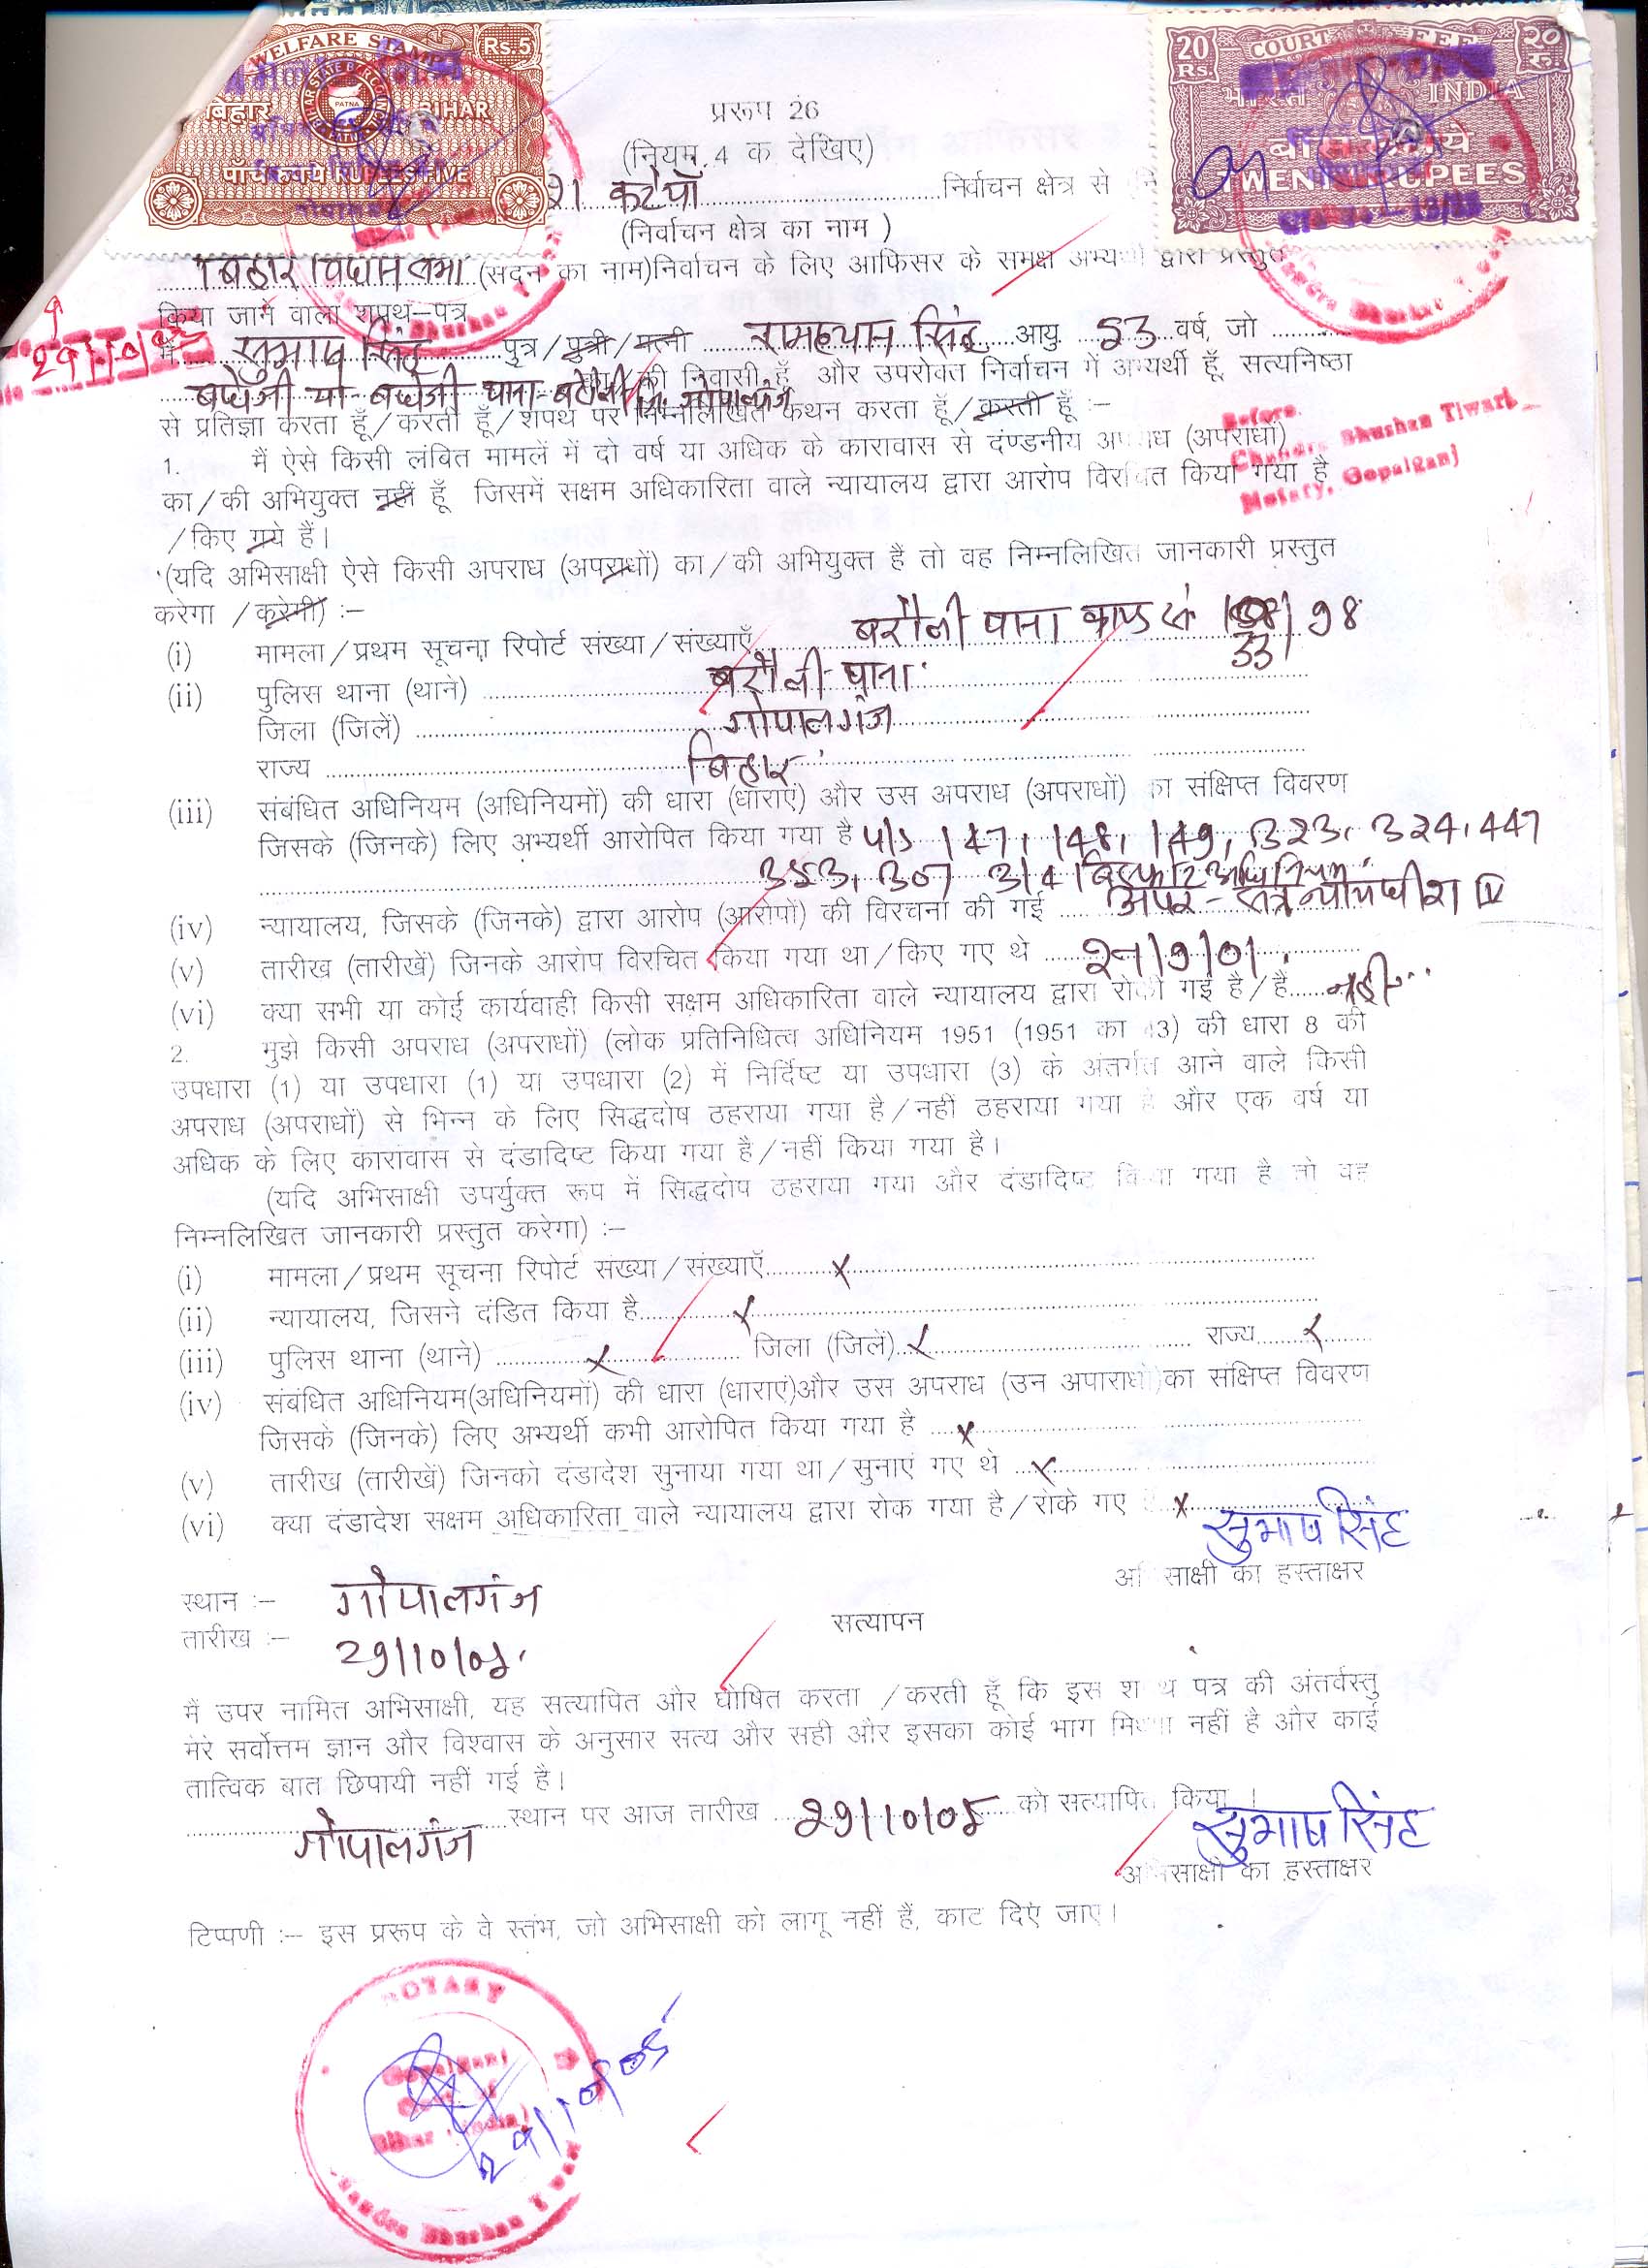 WELFARE STAMP Rs.5
बिहार BIHAR
पाँच रुपये RUPEES FIVE
20 Rs. COURT FEE २० रु.
भारत INDIA
TWENTY RUPEES
प्ररूप 26
(नियम 4 क देखिए)
21 कटेया निर्वाचन क्षेत्र से
(निर्वाचन क्षेत्र का नाम )
बिहार विधान सभा (सदन का नाम)निर्वाचन के लिए आफिसर के समक्ष अभ्यर्थी द्वारा प्रस्तुत
किया जाने वाला शपथ–पत्र
मैं सुभाष सिंह पुत्र/पुत्री/पत्नी रामध्यान सिंह आयु 53 वर्ष, जो
बघेजी पो बघेजी थाना-बरौली जि. गोपालगंज का/की निवासी हूँ और उपरोक्त निर्वाचन में अभ्यर्थी हूँ, सत्यनिष्ठा
से प्रतिज्ञा करता हूँ/करती हूँ/शपथ पर निम्नलिखित कथन करता हूँ/करती हूँ :–
Before
Chandra Bhushan Tiwari
Notary, Gopalganj
1. मैं ऐसे किसी लंबित मामलें में दो वर्ष या अधिक के कारावास से दंण्डनीय अपराध (अपराधों)
का/की अभियुक्त नहीं हूँ जिसमें सक्षम अधिकारिता वाले न्यायालय द्वारा आरोप विरचित किया गया है
/किए गये हैं।
(यदि अभिसाक्षी ऐसे किसी अपराध (अपराधों) का/की अभियुक्त है तो वह निम्नलिखित जानकारी प्रस्तुत
करेगा /करेगी) :–
(i) मामला/प्रथम सूचना रिपोर्ट संख्या/संख्याएँ बरौली थाना काण्ड सं 33/98
(ii) पुलिस थाना (थाने) बरौली थाना
जिला (जिलें) गोपालगंज
राज्य बिहार
(iii) संबंधित अधिनियम (अधिनियमों) की धारा (धाराएं) और उस अपराध (अपराधों) का संक्षिप्त विवरण
जिसके (जिनके) लिए अभ्यर्थी आरोपित किया गया है 147, 148, 149, 323, 324, 447
353, 307 3/4 विस्फोट अधिनियम
(iv) न्यायालय, जिसके (जिनके) द्वारा आरोप (आरोपों) की विरचना की गई अपर-सत्र न्यायधीश IV
(v) तारीख (तारीखें) जिनके आरोप विरचित किया गया था/किए गए थे 27/9/01
(vi) क्या सभी या कोई कार्यवाही किसी सक्षम अधिकारिता वाले न्यायालय द्वारा रोकी गई है/हैं नहीं
2. मुझे किसी अपराध (अपराधों) (लोक प्रतिनिधित्व अधिनियम 1951 (1951 का 43) की धारा 8 की
उपधारा (1) या उपधारा (1) या उपधारा (2) में निर्दिष्ट या उपधारा (3) के अंतर्गत आने वाले किसी
अपराध (अपराधों) से भिन्न के लिए सिद्धदोष ठहराया गया है/नहीं ठहराया गया है और एक वर्ष या
अधिक के लिए कारावास से दंडादिष्ट किया गया है/नहीं किया गया है।
(यदि अभिसाक्षी उपर्युक्त रूप में सिद्धदोष ठहराया गया और दंडादिष्ट किया गया है तो वह
निम्नलिखित जानकारी प्रस्तुत करेगा) :–
(i) मामला/प्रथम सूचना रिपोर्ट संख्या/संख्याएँ x
(ii) न्यायालय, जिसने दंडित किया है x
(iii) पुलिस थाना (थाने) x जिला (जिलें) x राज्य x
(iv) संबंधित अधिनियम(अधिनियमों) की धारा (धाराएं)और उस अपराध (उन अपाराधों)का संक्षिप्त विवरण
जिसके (जिनके) लिए अभ्यर्थी कभी आरोपित किया गया है x
(v) तारीख (तारीखें) जिनको दंडादेश सुनाया गया था/सुनाएं गए थे x
(vi) क्या दंडादेश सक्षम अधिकारिता वाले न्यायालय द्वारा रोक गया है/रोके गए x
सुभाष सिंह
अभिसाक्षी का हस्ताक्षर
स्थान :– गोपालगंज
सत्यापन
तारीख :– 29/10/05
मैं उपर नामित अभिसाक्षी, यह सत्यापित और घोषित करता /करती हूँ कि इस शपथ पत्र की अंतर्वस्तु
मेरे सर्वोत्तम ज्ञान और विश्वास के अनुसार सत्य और सही और इसका कोई भाग मिथ्या नहीं है और काई
तात्विक बात छिपायी नहीं गई है।
गोपालगंज स्थान पर आज तारीख 29/10/05 को सत्यापित किया ।
सुभाष सिंह
अभिसाक्षी का हस्ताक्षर
टिप्पणी :– इस प्ररूप के वे स्तंभ, जो अभिसाक्षी को लागू नहीं हैं, काट दिएं जाए।
NOTARY
Gopalganj
Bihar (India)
Chandra Bhushan Tiwari
29/10/05